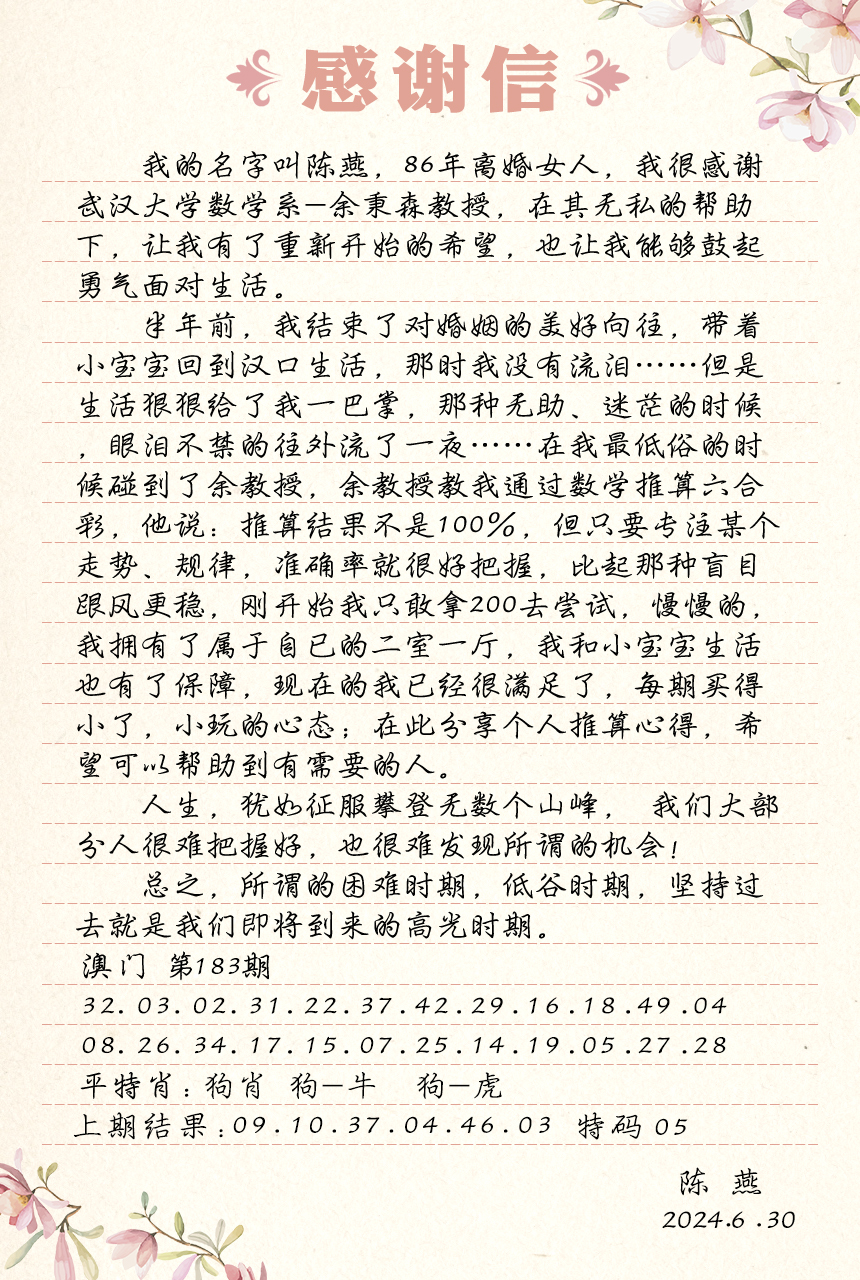 感谢信
我的名字叫陈燕，86年离婚女人，我很感谢
武汉大学数学系—余秉森教授，在其无私的帮助
下，让我有了重新开始的希望，也让我能够鼓起
勇气面对生活。
半年前，我结束了对婚姻的美好向往，带着
小宝宝回到汉口生活，那时我没有流泪……但是
生活狠狠给了我一巴掌，那种无助、迷茫的时候
，眼泪不禁的往外流了一夜……在我最低俗的时
候碰到了余教授，余教授教我通过数学推算六合
彩，他说：推算结果不是100%，但只要专注某个
走势、规律，准确率就很好把握，比起那种盲目
跟风更稳，刚开始我只敢拿200去尝试，慢慢的，
我拥有了属于自已的二室一厅，我和小宝宝生活
也有了保障，现在的我已经很满足了，每期买得
小了，小玩的心态；在此分享个人推算心得，希
望可以帮助到有需要的人。
人生，犹如征服攀登无数个山峰， 我们大部
分人很难把握好，也很难发现所谓的机会！
总之，所谓的困难时期，低谷时期，坚持过
去就是我们即将到来的高光时期。
澳门 第183期
32.03.02.31.22.37.42.29.16.18.49.04
08.26.34.17.15.07.25.14.19.05.27.28
平特肖：狗肖 狗—牛 狗—虎
上期结果：09.10.37.04.46.03 特码 05
陈 燕
2024.6.30